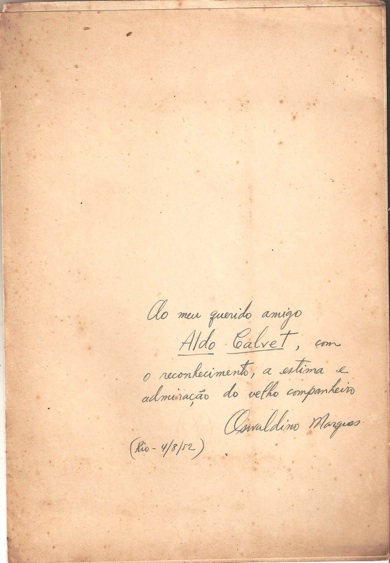 Ao meu querido amigo
Aldo Calvet, com
o reconhecimento, a estima e
admiração do velho companheiro
Oswaldino Marques
(Rio - 4/8/52)